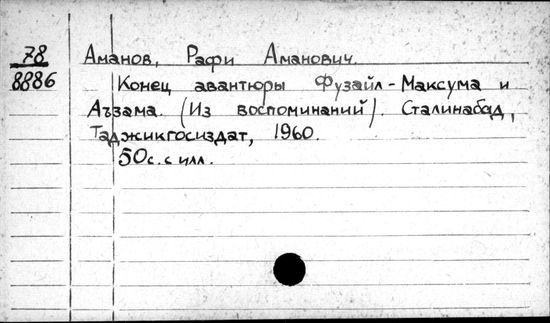 78 Аманов, Рафи Аманович.
8886 Конец авантюры Фузайл-Максума и
Аъзама. (Из воспоминаний). Сталинабад,
Таджикгосиздат, 1960.
50с. с илл.